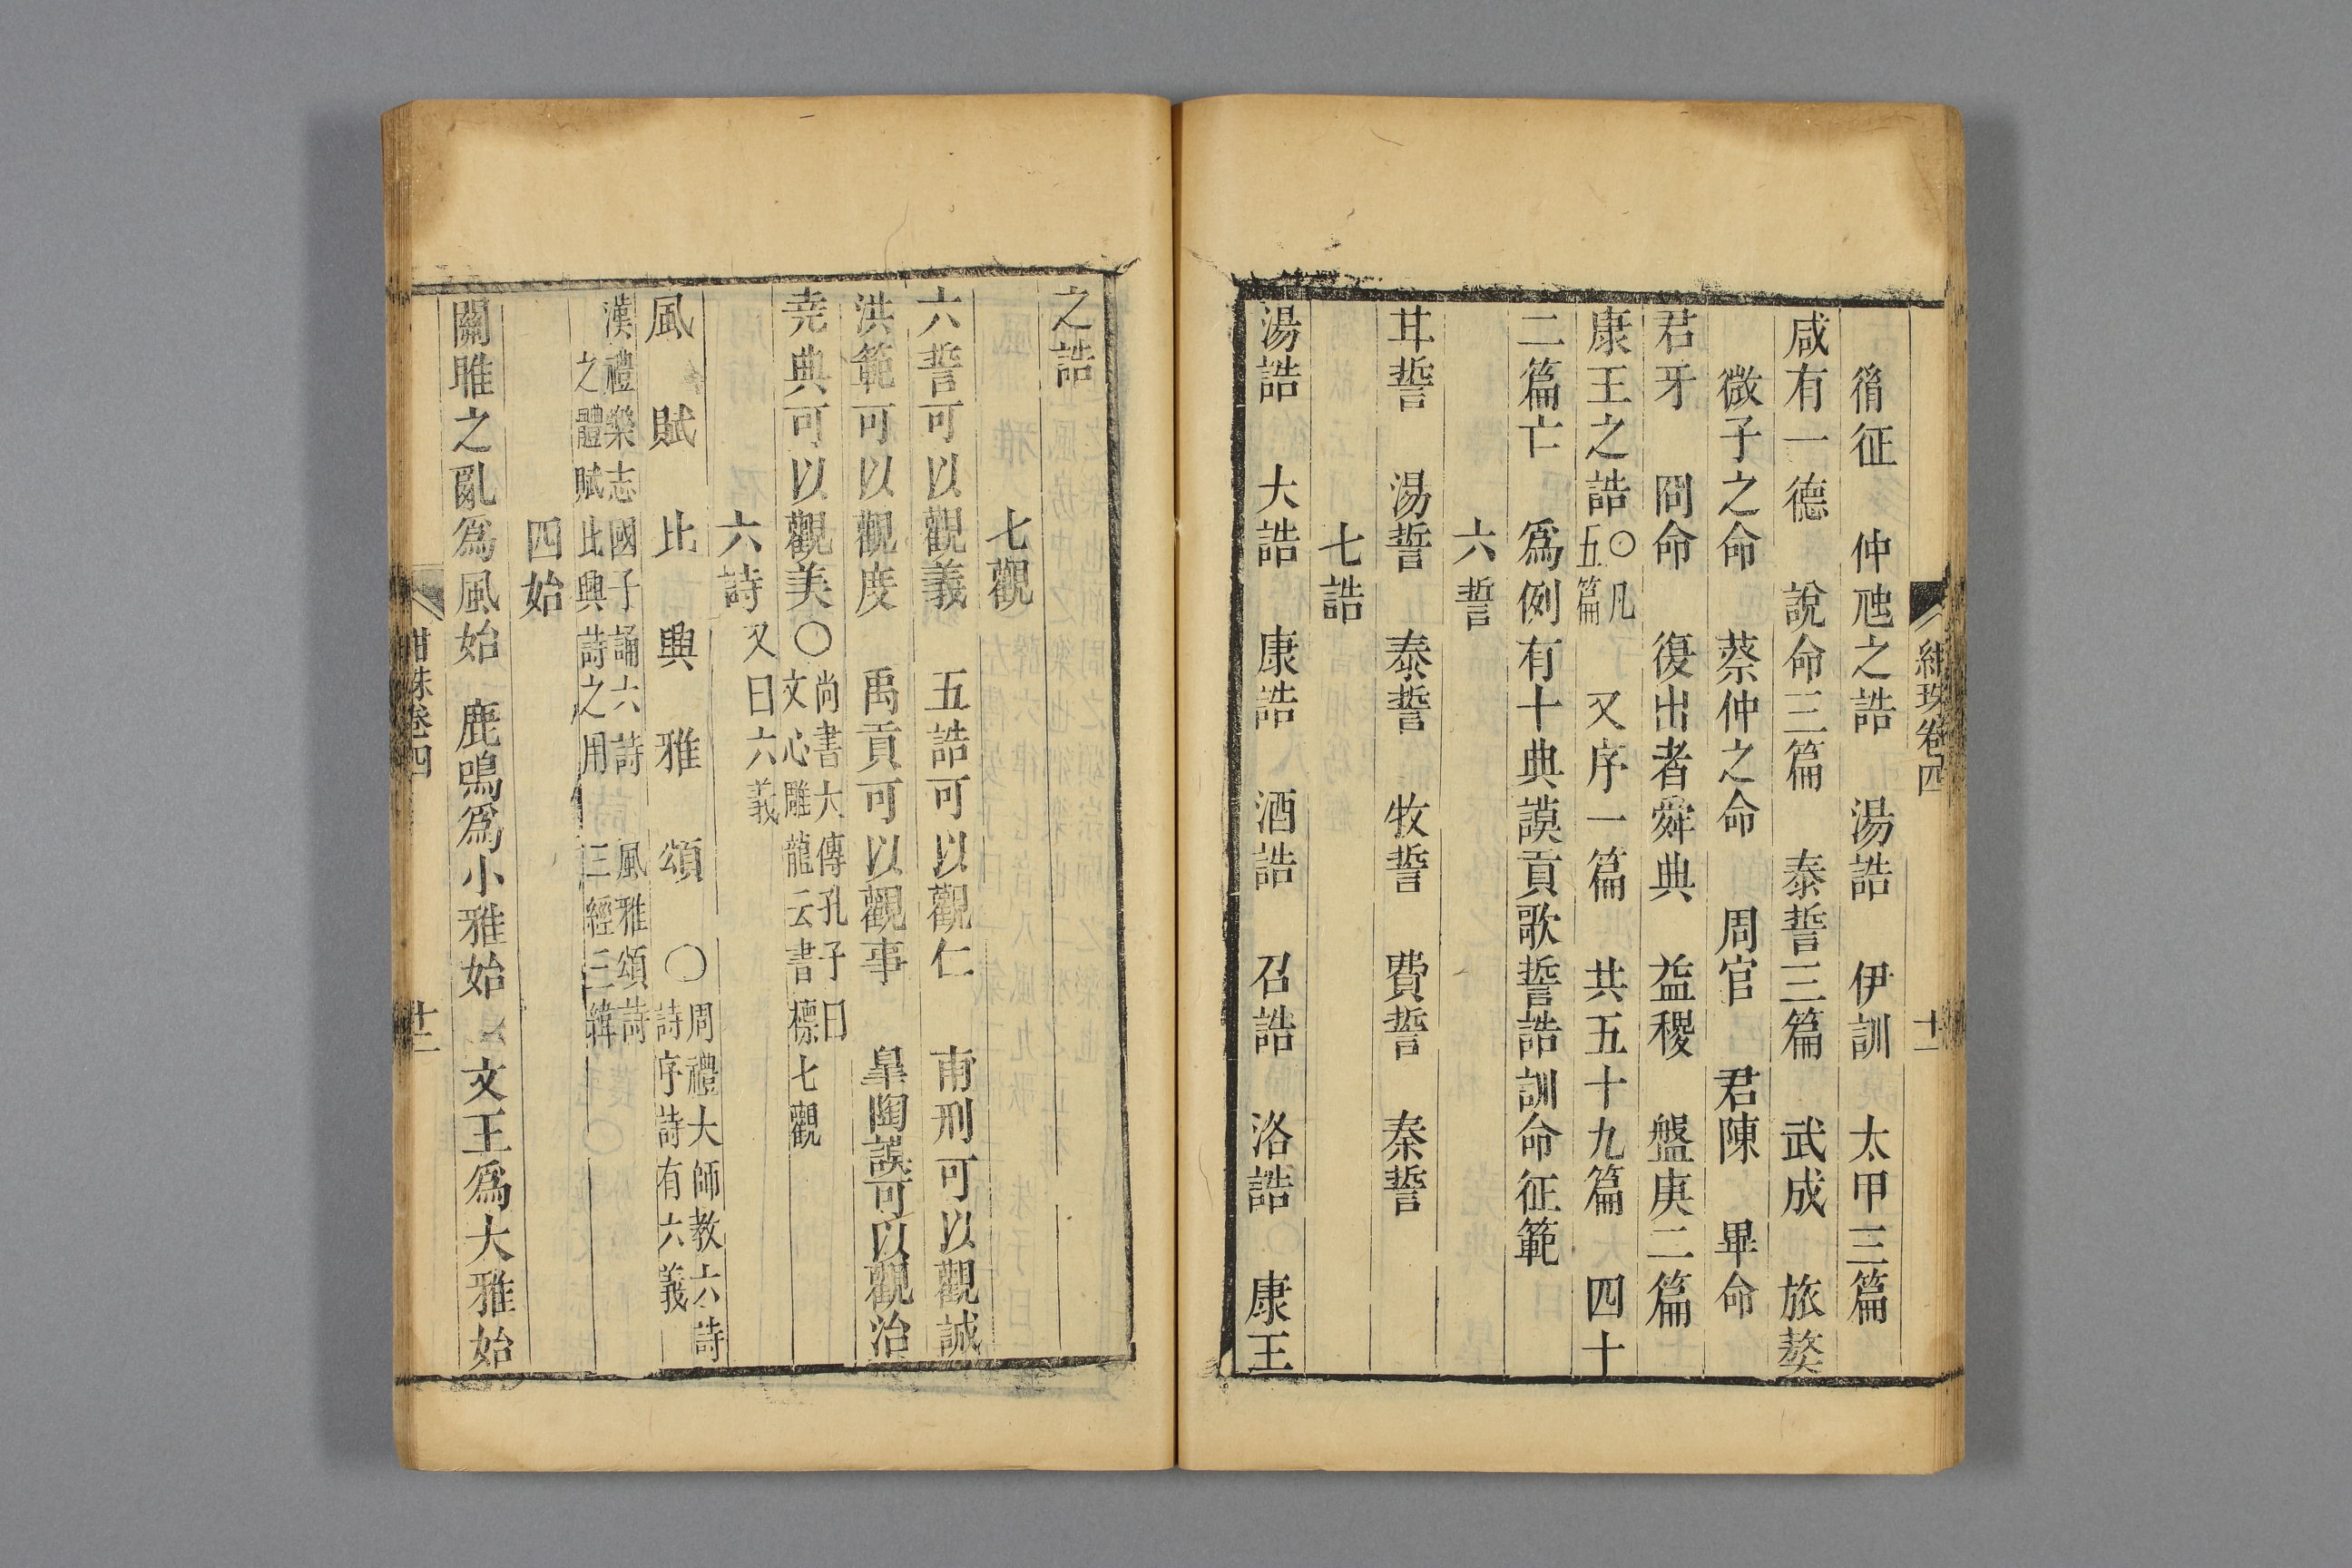 紺珠卷四
十一
㣧征　仲虺之誥　湯誥　伊訓　太甲三篇
咸有一德　說命三篇　泰誓三篇　武成　旅獒
微子之命　蔡仲之命　周官　君陳　畢命
君牙　冏命　復出者舜典　益稷　盤庚二篇
康王之誥○凡五篇　又序一篇　共五十九篇　四十
二篇亡　爲例有十典謨貢歌誓誥訓命征範
六誓
甘誓　湯誓　泰誓　牧誓　費誓　秦誓
七誥
湯誥　大誥　康誥　酒誥　召誥　洛誥　康王
之誥
七觀
六誓可以觀義　五誥可以觀仁　甫刑可以觀誠
洪範可以觀度　禹貢可以觀事　皐陶謨可以觀治
堯典可以觀美○尚書大傳孔子曰
文心雕龍云書標七觀
六詩又曰六義
風　賦　比　興　雅　頌　○周禮大師教六詩
詩序詩有六義
漢禮樂志國子誦六詩　風雅頌詩
之體賦比興詩之用　三經三緯
四始
關雎之亂爲風始　鹿鳴爲小雅始　文王爲大雅始
紺珠卷四
十二